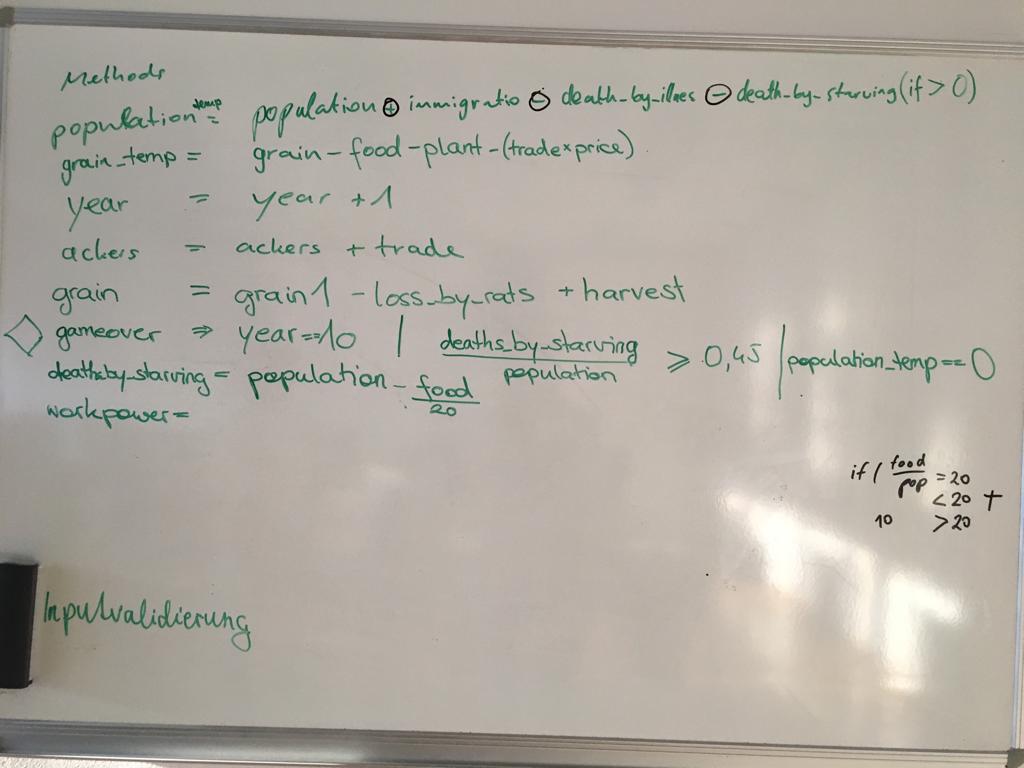 Methods
population_temp = population ⊕ immigratio ⊖ death_by_illnes ⊖ death_by_starving (if > 0)
grain_temp = grain - food - plant - (trade × price)
year = year + 1
ackers = ackers + trade
grain = grain1 - loss_by_rats + harvest
gameover ⇒ year == 10 | deaths_by_starving / population ≥ 0,45 | population_temp == 0
deaths_by_starving = population - food / 20
workpower =
if ( food / pop = 20
< 20 †
10 > 20
Inputvalidierung